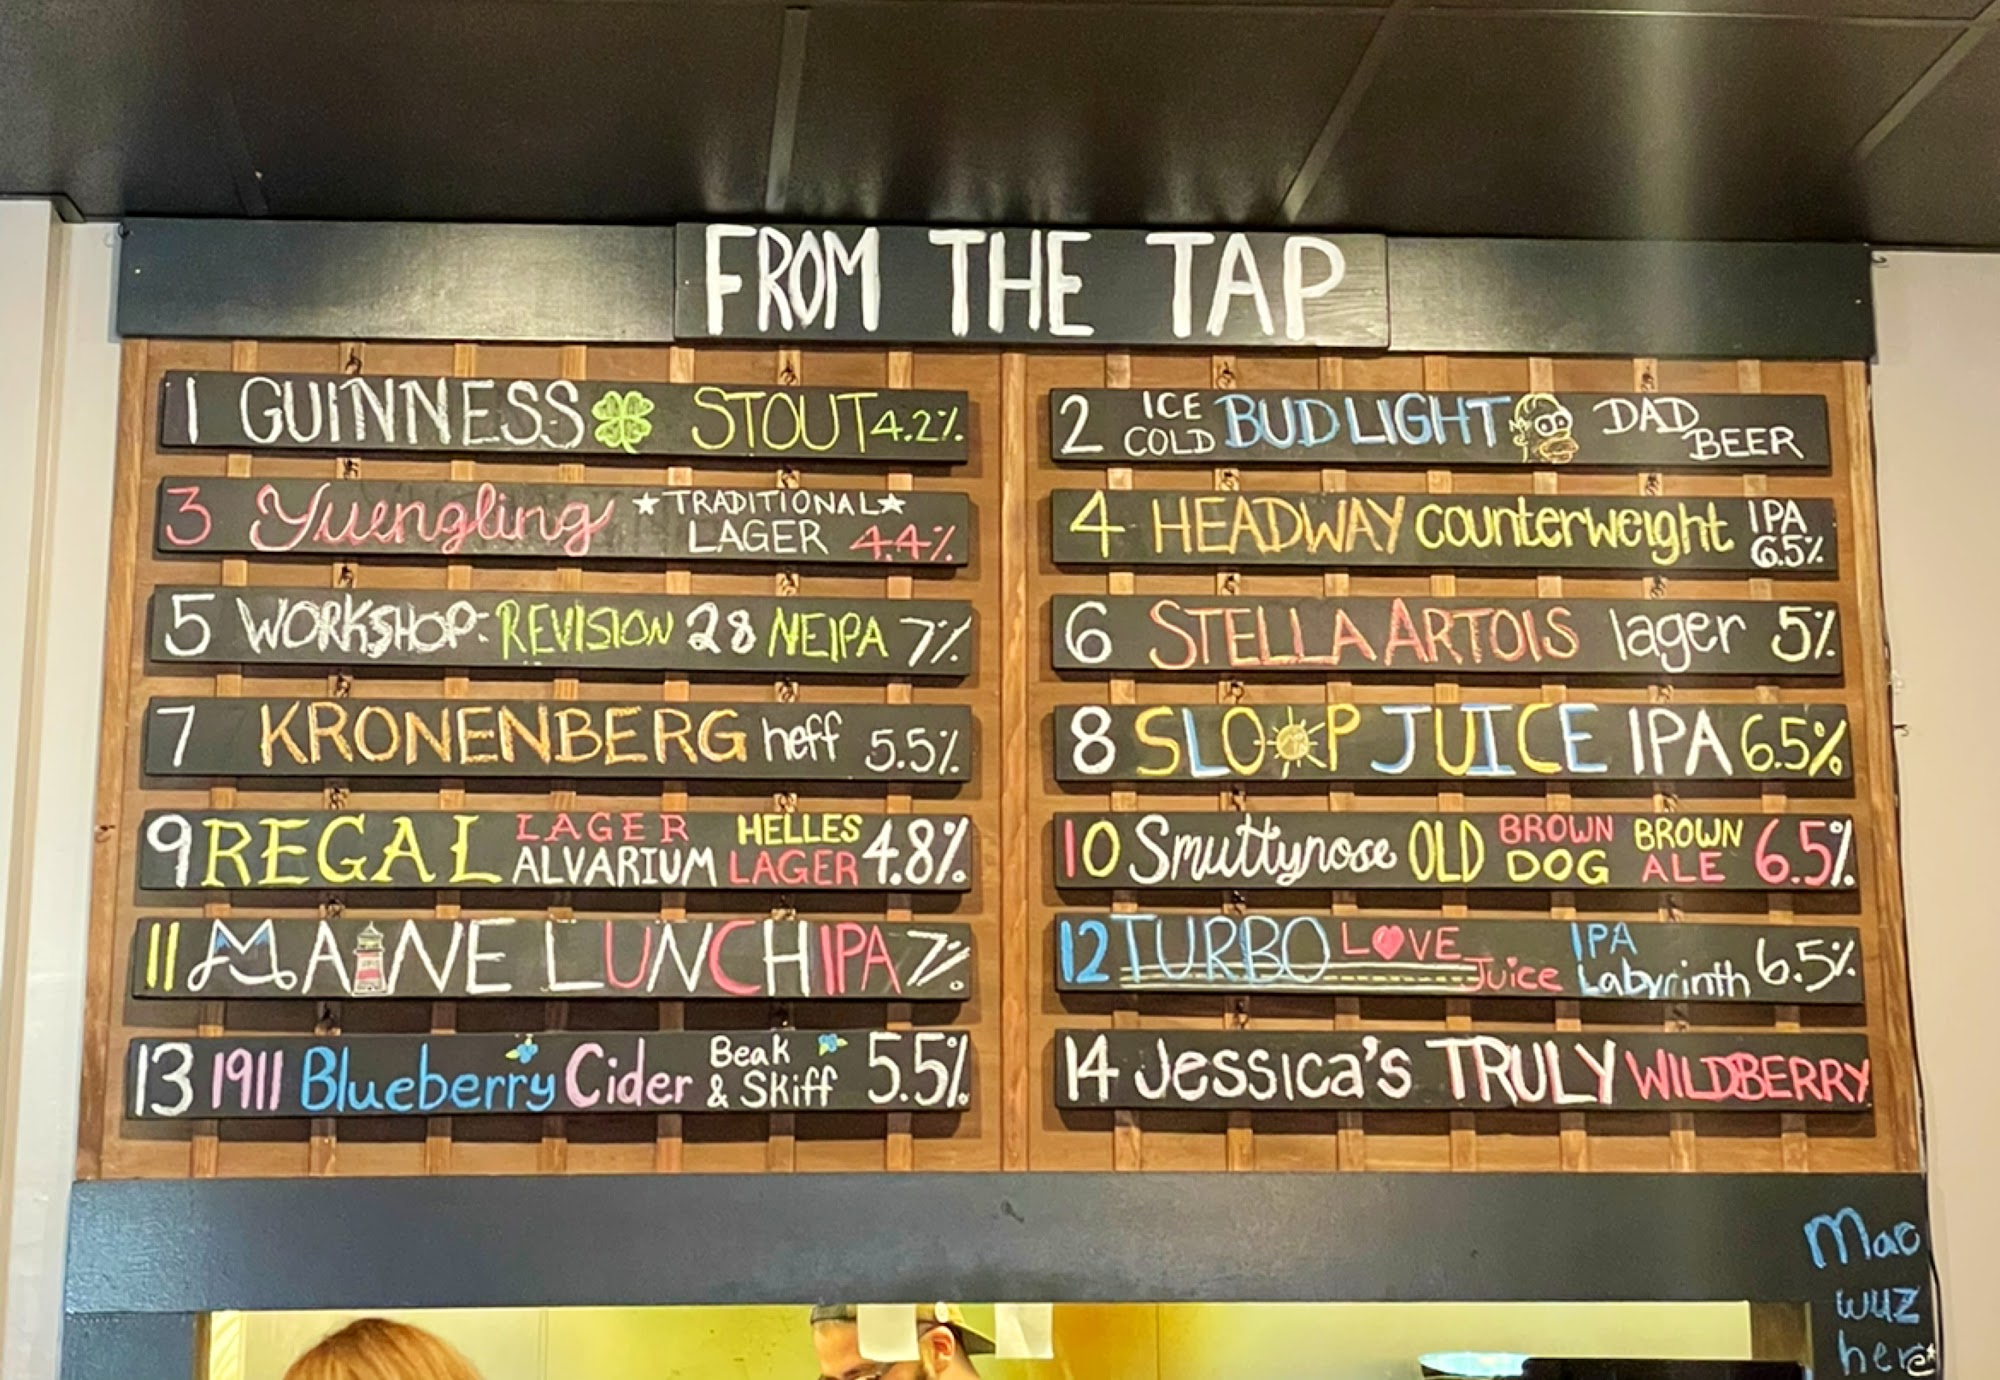 FROM THE TAP
1 GUINNESS STOUT 4.2%
2 ICE COLD BUD LIGHT DAD BEER
3 Yuengling TRADITIONAL LAGER 4.4%
4 HEADWAY counterweight IPA 6.5%
5 WORKSHOP: REVISION 28 NEIPA 7%
6 STELLA ARTOIS lager 5%
7 KRONENBERG heff 5.5%
8 SLOOP JUICE IPA 6.5%
9 REGAL LAGER ALVARIUM HELLES LAGER 4.8%
10 Smuttynose OLD BROWN DOG BROWN ALE 6.5%
11 MAINE LUNCH IPA 7%
12 TURBO LOVE Juice IPA Labyrinth 6.5%
13 1911 Blueberry Cider Beak & Skiff 5.5%
14 Jessica's TRULY WILDBERRY
Mac
wuz
here